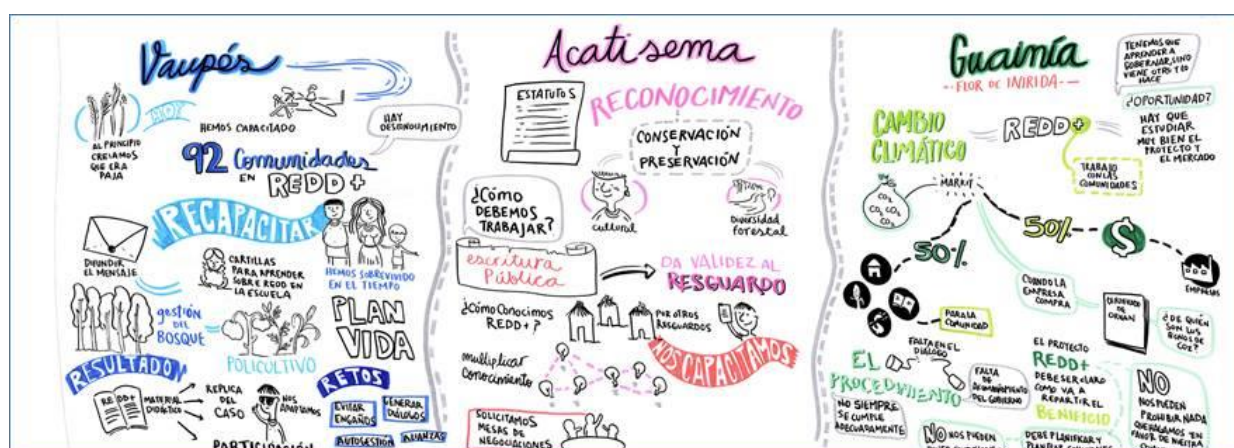 Vaupés
HOY
AL PRINCIPIO
CREIAMOS
QUE ERA
PAJA
HEMOS CAPACITADO
HAY
DESCONOCIMIENTO
92 Comunidades
EN REDD+
RECAPACITAR
DIFUNDIR
EL MENSAJE
CARTILLAS
PARA APRENDER
SOBRE REDD EN
LA ESCUELA
HEMOS SOBREVIVIDO
EN EL TIEMPO
gestión
DEL
BOSQUE
POLICULTIVO
PLAN
VIDA
RESULTADO
REDD+
MATERIAL
DIDÁCTICO
REPLICA
DEL
CASO
NOS
ADAPTAMOS
PARTICIPACIÓN
RETOS
EVITAR
ENGAÑOS
GENERAR
DIÁLOGOS
AUTOGESTIÓN
ALIANZAS
Acatisema
ESTATUTOS
RECONOCIMIENTO
CONSERVACIÓN
Y
PRESERVACIÓN
cultural
Diversidad
forestal
¿CÓMO
DEBEMOS
TRABAJAR?
escritura
Pública
DA VALIDEZ AL
RESGUARDO
¿CÓMO CONOCIMOS
REDD+?
POR OTROS
RESGUARDOS
NOS CAPACITAMOS
multiplicar
conocimiento
SOLICITAMOS
MESAS DE
NEGOCIACIONES
Guainía
FLOR DE INIRIDA
TENEMOS QUE
APRENDER A
GOBERNAR, SINO
VIENE OTRO Y LO
HACE
¿OPORTUNIDAD?
HAY QUE
ESTUDIAR
MUY BIEN EL
PROYECTO Y
EL MERCADO
CAMBIO
CLIMÁTICO
REDD+
TRABAJO
CON LAS
COMUNIDADES
CO2
CO2 CO2
CO2
50%
50%
$
EMPRESAS
PARA LA
COMUNIDAD
CUANDO LA
EMPRESA
COMPRA
CERTIFICADO
DE
ORIGEN
¿DE QUIÉN
SON LOS
BONOS DE
CO2?
FALTA EN EL
DIÁLOGO
EL
PROCEDIMIENTO
FALTA
DE
DEL GOBIERNO
NO SIEMPRE
SE CUMPLE
ADECUADAMENTE
NO NOS PUEDEN
EL PROYECTO
REDD+
DEBE SER CLARO
COMO VA A
REPARTIR EL
BENEFICIO
DEBE PLANIFICAR Y
NO
NOS PUEDEN
PROHIBIR NADA
QUE HAGAMOS EN
FAVOR DE NUESTRA